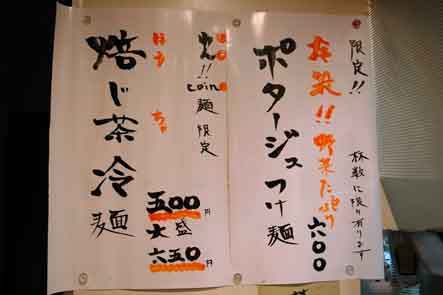 限定!!
杯数に限り有ります
野菜たっぷり
六〇〇
ポタージュつけ麺
coin麺限定
ほうちゃ
焙じ茶冷麺
五〇〇円
大盛
六五〇円